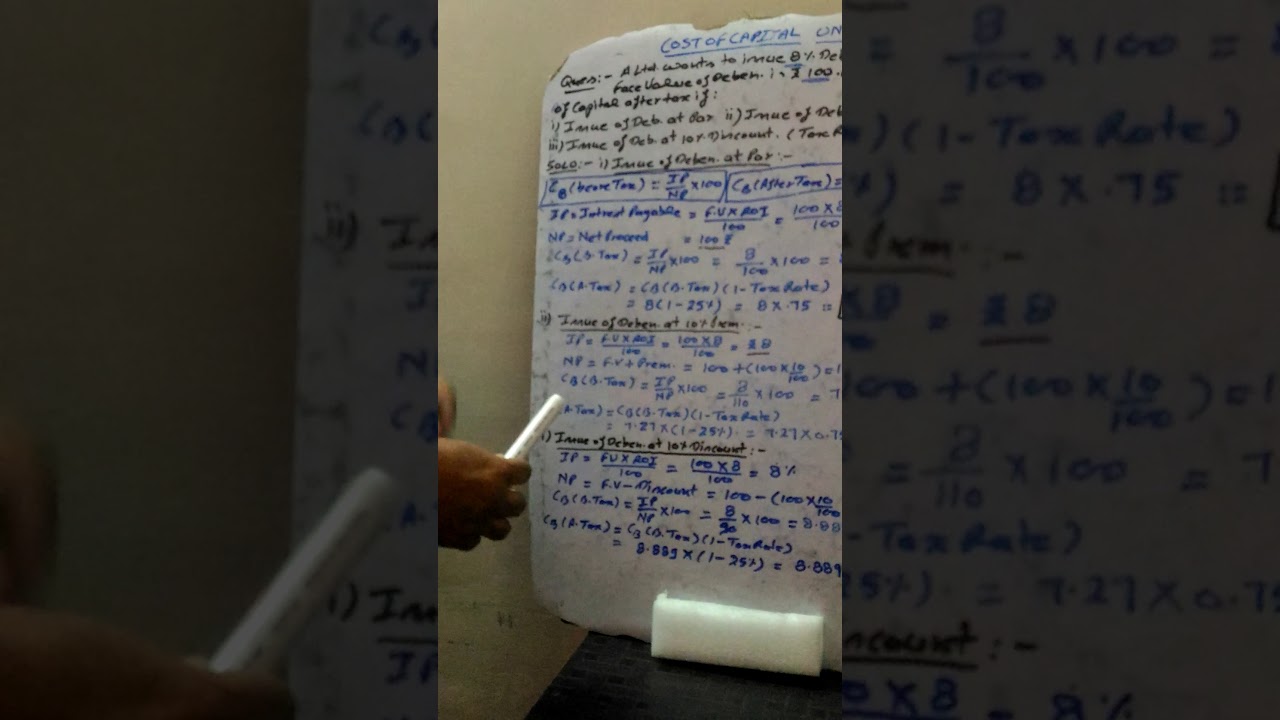 COST OF CAPITAL UN
Ques:- A Ltd wants to issue 8% Deb
Face Value of Deben. is ₹ 100.
of Capital after tax if:
i) Issue of Deb. at Par ii) Issue of Deb
iii) Issue of Deb. at 10% Discount. (Tax R
SOLO:- i) Issue of Deben. at Par:-
CB (before Tax) = IP/NP × 100 CB (After Tax) =
IP = Intrest Payable = F.V × ROI/100 = 100 × 8/100
NP = Net Proceed = 100 ₹
CB (B.Tax) = IP/NP × 100 = 8/100 × 100 =
CB (A.Tax) = CB (B.Tax) (1 - Tax Rate)
= 8 (1 - 25%) = 8 × .75 =
ii) Issue of Deben. at 10% Prem. :-
IP = F.V × ROI/100 = 100 × 8/100 = ₹ 8
NP = F.V + Prem. = 100 + (100 × 10/100) = 1
CB (B.Tax) = IP/NP × 100 = 8/110 × 100 = 7
A.Tax) = CB (B.Tax) (1 - Tax Rate)
= 7.27 × (1 - 25%) = 7.27 × 0.75
i) Issue of Deben. at 10% Discount :-
IP = F.V × ROI/100 = 100 × 8/100 = 8%
NP = F.V - Discount = 100 - (100 × 10/100
CB (B.Tax) = IP/NP × 100 = 8/90 × 100 = 8.88
CB (A.Tax) = CB (B.Tax) (1 - Tax Rate)
= 8.889 × (1 - 25%) = 8.889